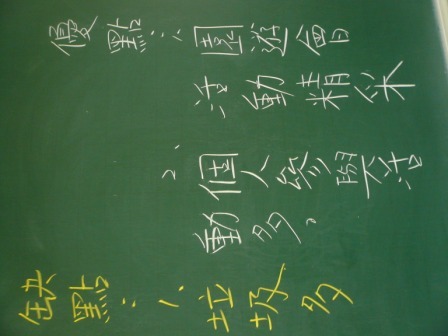 優點:1、園遊會
活動精彩
2、個人參與活
動多。
缺點:1、垃圾多